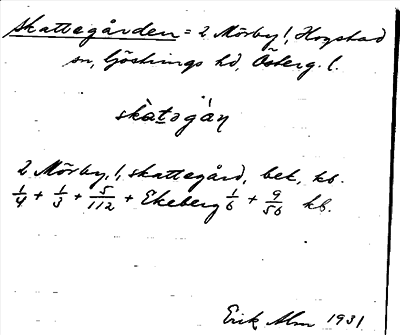 Skattegården = 2 Mörby!, Hogstad
sn, Göstrings hd, Österg. l.
skàtogán
2 Mörby, !, skattegård, bet., kb.
1/4 + 1/3 + 5/112 + Ekeberg 1/6 + 9/56 kb.
Erik Alm 1931